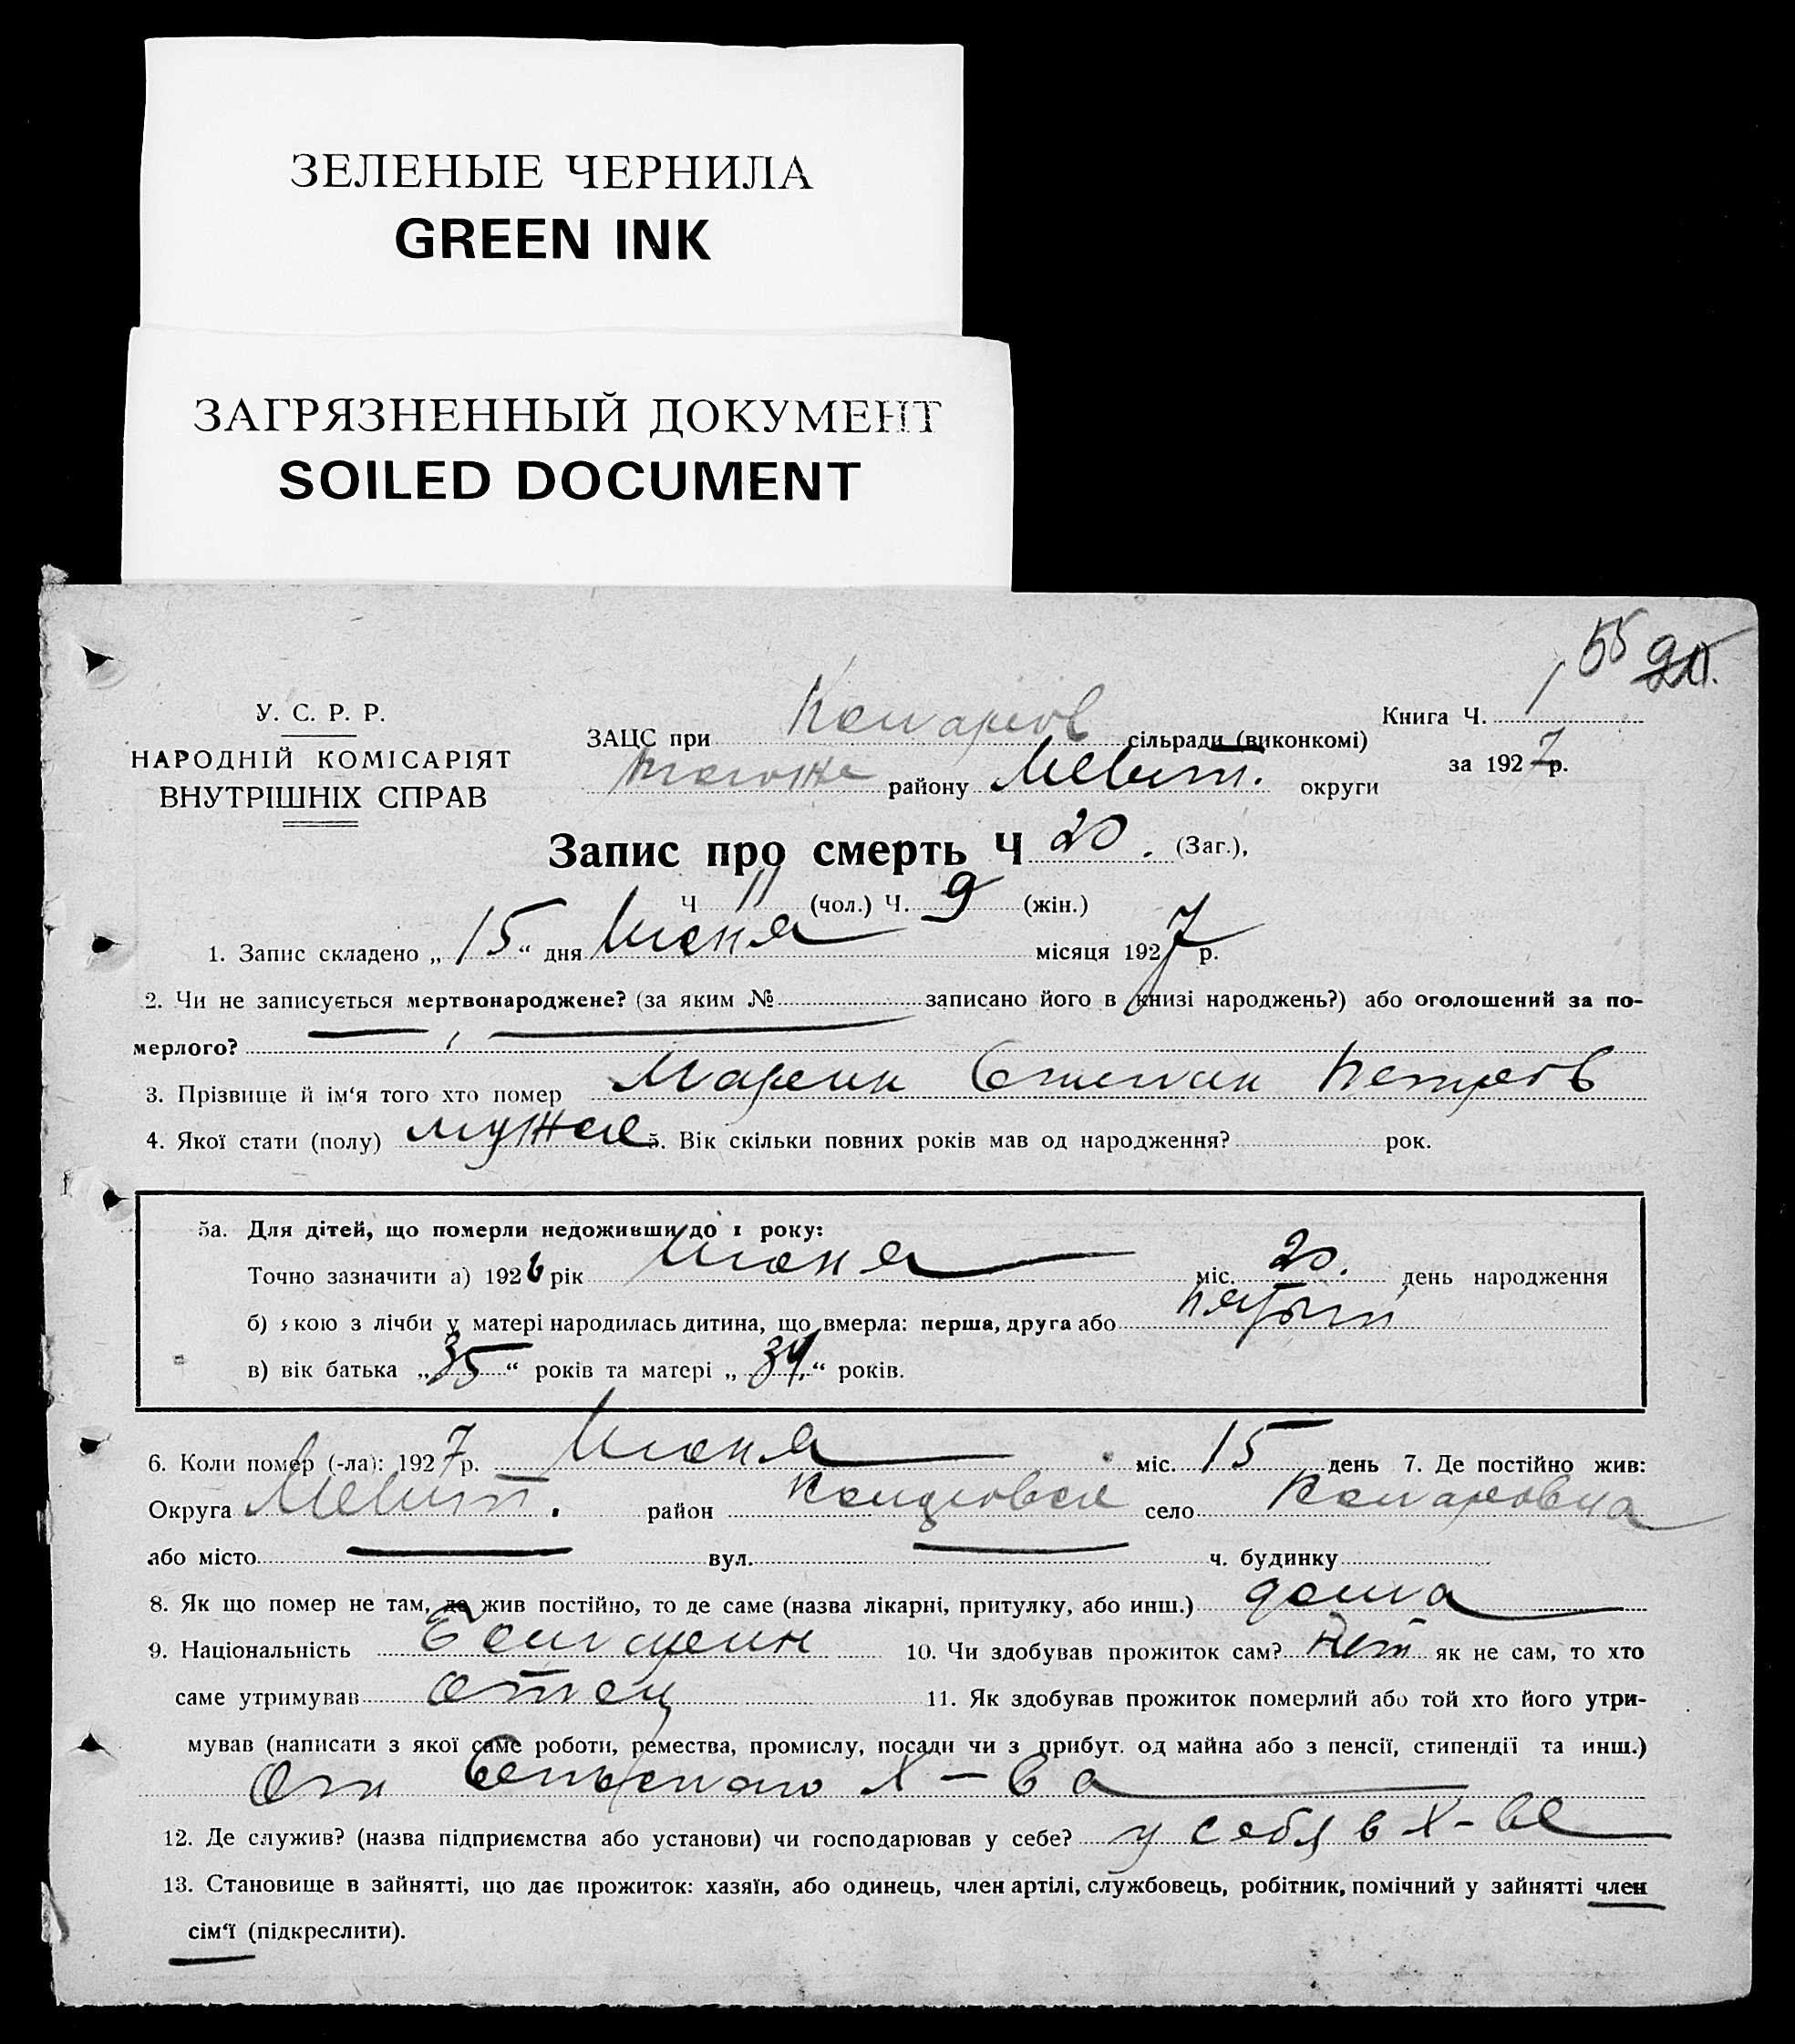 ЗЕЛЕНЫЕ ЧЕРНИЛА
GREEN INK
ЗАГРЯЗНЕННЫЙ ДОКУМЕНТ
SOILED DOCUMENT
55
У. С. Р. Р.
НАРОДНІЙ КОМІСАРІЯТ
ВНУТРІШНІХ СПРАВ
Книга Ч. 1
за 1927 р.
ЗАЦС при Комаров сільради (виконкомі)
району Мелит. округи
Запис про смерть Ч 20. (Заг.),
Ч 11 (чол.) Ч. 9 (жін.)
1. Запис складено „15“ дня Июня місяця 1927 р.
2. Чи не записується мертвонароджене? (за яким № записано його в книзі народжень?) або оголошений за по-
мерлого?
3. Прізвище й ім‘я того хто помер Марин Степан Петров
4. Якої стати (полу) мужск 5. Вік скільки повних років мав од народження? рок.
5а. Для дітей, що померли недоживши до 1 року:
Точно зазначити а) 1926 рік Июня міс. 20. день народження
б) якою з лічби у матері народилась дитина, що вмерла: перша, друга або пятый
в) вік батька „35“ років та матері „34“ років.
6. Коли помер (-ла): 1927 р. Июня міс. 15 день 7. Де постійно жив:
Округа Мелит. район село Комаровка
або місто вул. ч. будинку
8. Як що помер не там, де жив постійно, то де саме (назва лікарні, притулку, або инш.) дома
9. Національність Болгарин 10. Чи здобував прожиток сам? Нет як не сам, то хто
саме утримував отец 11. Як здобував прожиток померлий або той хто його утри-
мував (написати з якої саме роботи, ремества, промислу, посади чи з прибут. од майна або з пенсії, стипендії та инш.)
От Сельского Х-ва
12. Де служив? (назва підприємства або установи) чи господарював у себе? у себя в Х-ве
13. Становище в зайнятті, що дає прожиток: хазяїн, або одинець, член артілі, службовець, робітник, помічний у зайнятті член
сім‘ї (підкреслити).